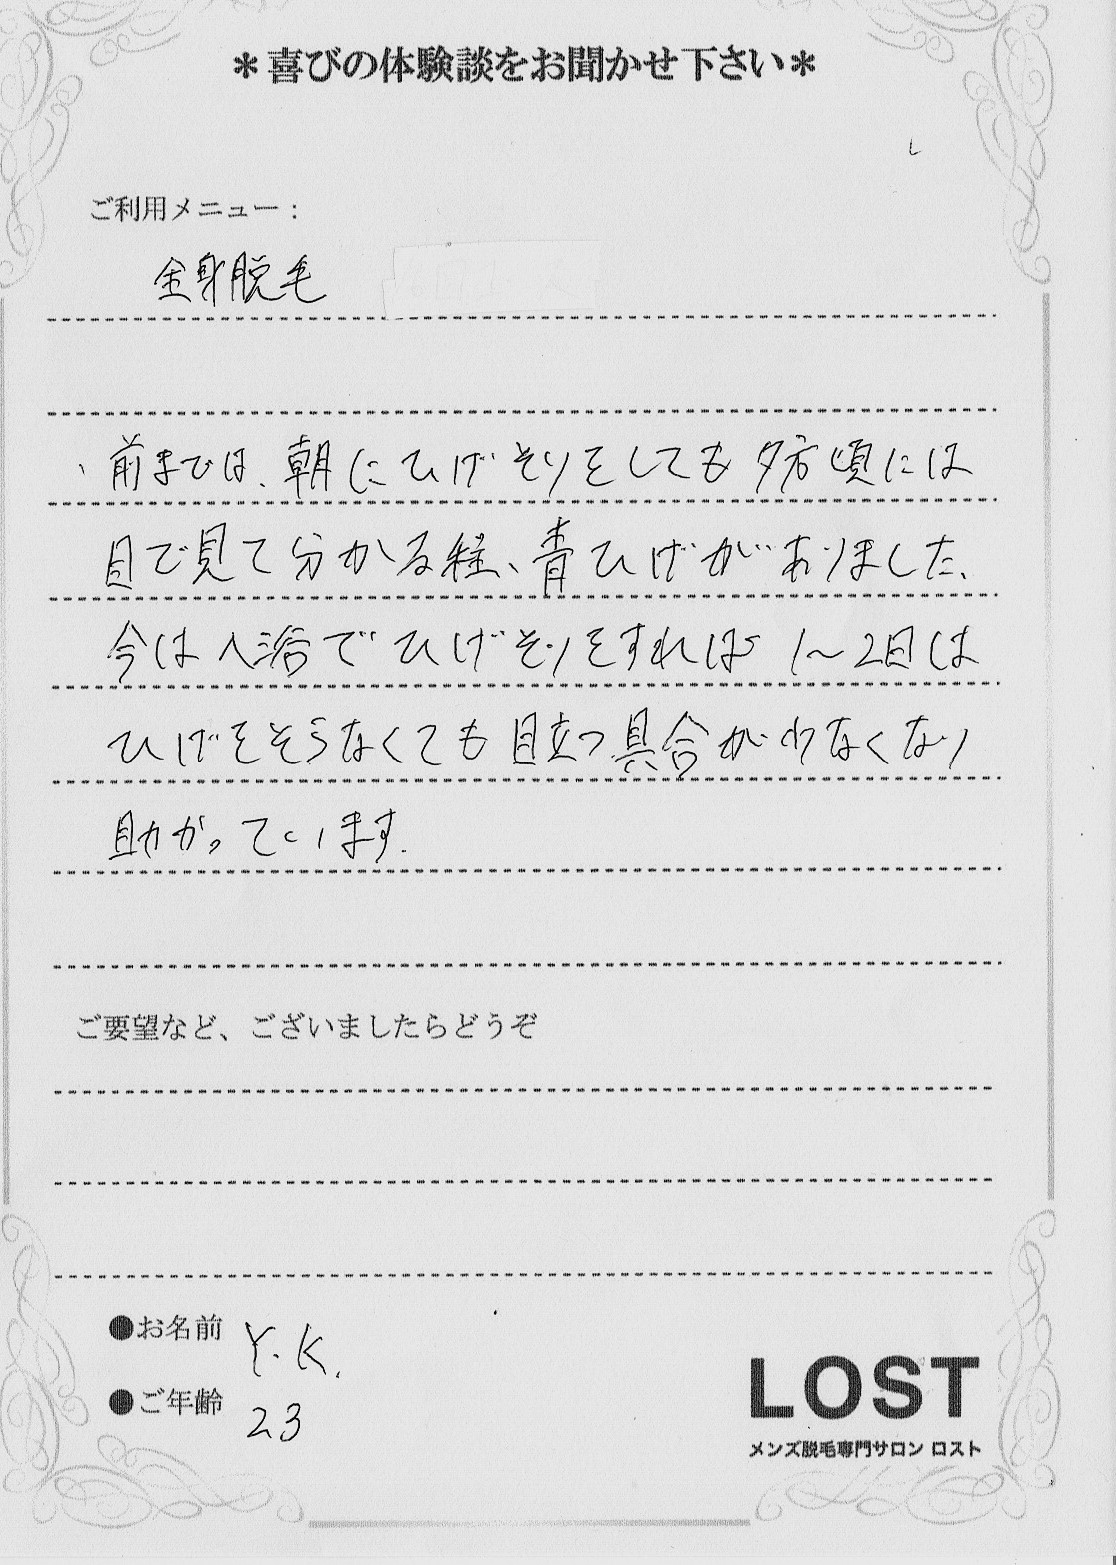 ＊喜びの体験談をお聞かせ下さい＊
ご利用メニュー：
全身脱毛
前までは、朝にひげそりをしても夕方頃には
目で見て分かる程、青ひげがありました、
今は入浴でひげそりをすれば 1～2日は
ひげをそらなくても目立つ具合が少なくなり
助かっています.
ご要望など、ございましたらどうぞ
●お名前 Y.K.
●ご年齢 23
LOST
メンズ脱毛専門サロン ロスト